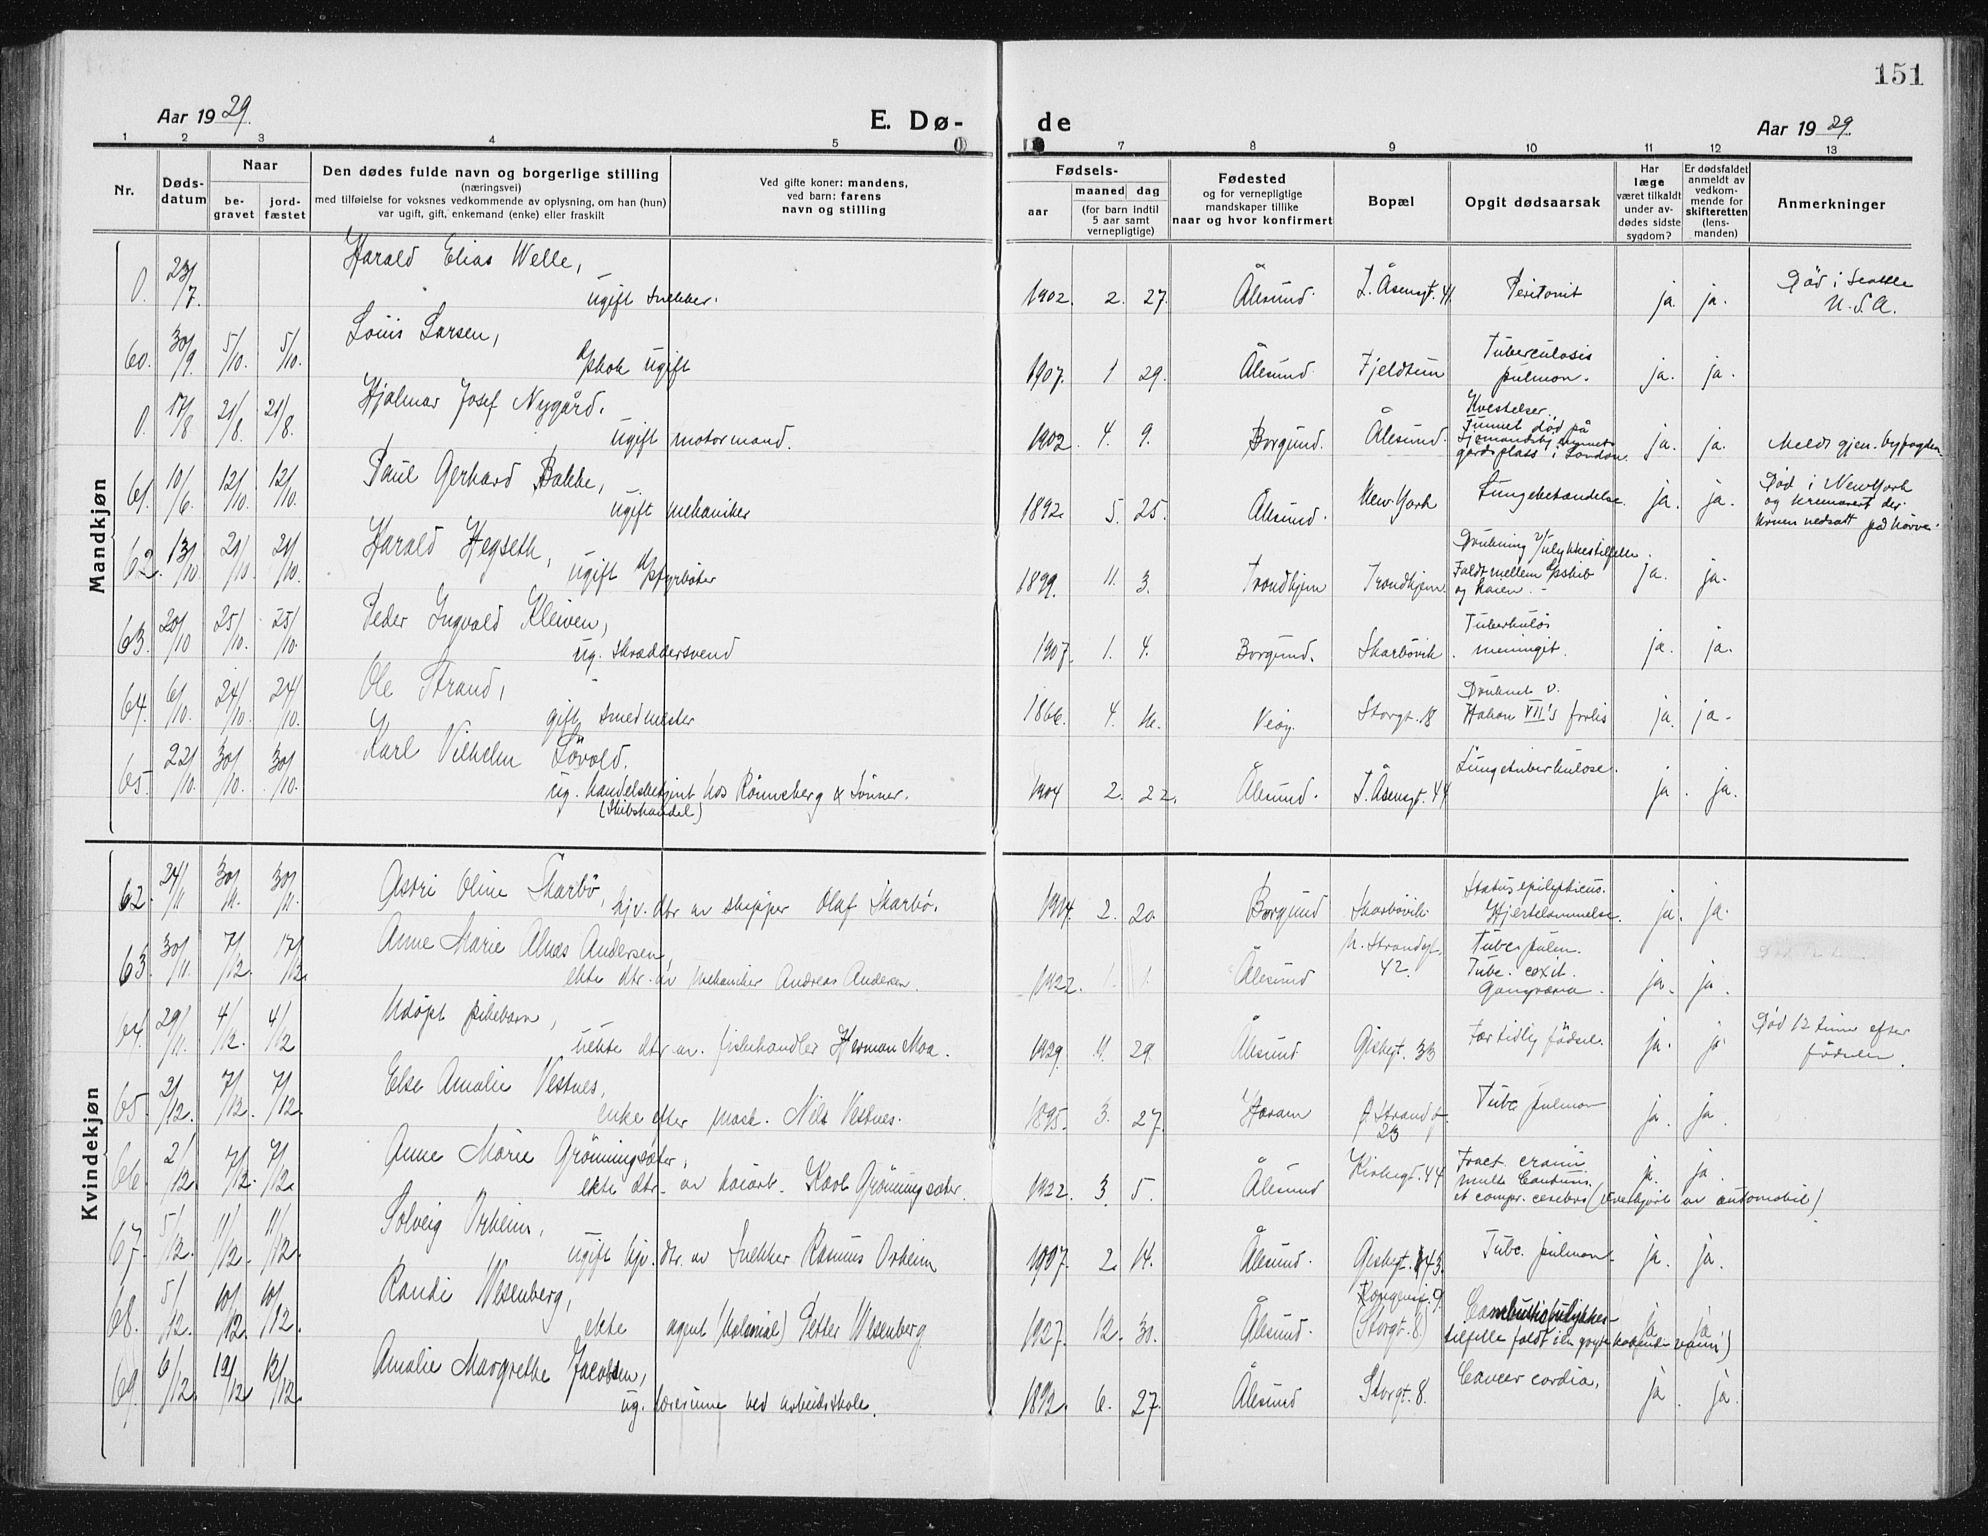 151
Aar 1929.
E. Dø-
de
Aar 1929.
1 2 3 4 5 7 8 9 10 11 12 13
Nr.
Døds-
datum
Naar
be-
gravet
jord-
fæstet
Den dødes fulde navn og borgerlige stilling
(næringsvei)
med tilføielse for voksnes vedkommende av oplysning, om han (hun)
var ugift, gift, enkemand (enke) eller fraskilt
Ved gifte koner: mandens,
ved barn: farens
navn og stilling
Fødsels-
aar
maaned dag
(for barn indtil
5 aar samt
vernepligtige)
Fødested
og for vernepligtige
mandskaper tillike
naar og hvor konfirmert
Bopæl
Opgit dødsaarsak
Har
læge
været tilkaldt
under av-
dødes sidste
sygdom?
Er dødsfaldet
anmeldt av
vedkom-
mende for
skifteretten
(lens-
manden)
Anmerkninger
Mandkjøn
0. 23/7. Harald Elias Welle,
ugift snekker.
1902. 2. 27. Ålesund. I. Åsensgt. 41. Peritonit ja. ja. Død i Seattle
U.S.A.
60. 30/9. 5/10. 5/10. Louis Larsen,
ugift
1907. 1 29. Ålesund. Fjeldtun Tuberculosis
pulmon. ja. ja.
0. 17/8 21/8. 21/8. Hjalmar Josef Nygård.
ugift motormand.
1902. 4. 9. Borgund. Ålesund. Kvestelser.
Funnet død på
gårdsplass i London. ja. ja.
61. 10/6. 12/10. 12/10. Paul Gerhard Bakke,
ugift mekaniker
1892. 5. 25. Ålesund. New-York Lungebetændelse. ja. ja. Død i New York
og kremeret der
62. 13/10 21/10. 21/10. Harald Hegseth,
ugift fyrbøter
1899. 11. 3. Trondhjem Trondhjem. Drukning v/ulykkestilfelle.
Faldt mellem skib
og kaien. ja. ja.
63. 20/10 25/10. 25/10. Peder Ingvald Kleiven,
ug. skræddersvend
1907. 1. 4. Borgund. Skarbövik. Tuberkuløs
meningit. ja. ja.
64. 6/10. 24/10. 24/10. Ole Strand,
gift, smedmester
1866. 4. 16. Veøy. Storgt. 18 Druknet v.
Hakon VII's forlis ja. ja.
65. 22/10. 30/10. 30/10. Karl Vilhelm Lövold.
ug. handelsbetjent hos Rönneberg & Sönner.
(Skibshandel)
1904 2. 22. Ålesund. I. Åsensgt. 44 Lungetuberkulose. ja. ja.
Kvindekjøn
62. 24/11 30/11. 30/11. Astri Oline Skarbö,
hjv. dtr av skipper Olaf Skarbö.
1914. 2. 20. Borgund Skarbövik Status epilepticus.
Hjertelammelse. ja. ja.
63. 30/11. 7/12. 7/12. Anne Marie Alnæs Andersen,
ekte dtr. av mekaniker Andreas Andersen.
1922. 1. 1. Ålesund N. Strandgt.
42. Tube. pulm.
Tube. coxit.
Gangræna. ja. ja.
64. 29/11. 4/12. 4/12 Udøpt pikebarn,
uekte dtr. av. fiskehandler Herman Moa.
1929. 11. 29. Ålesund. Giskegt. 33 Fortidlig fødsel. ja. ja Død 12 timer efter
fødselen.
65. 2/12. 7/12. 7/12. Else Amalie Vestnes,
enke efter mask. Nils Vestnes.
1895. 3. 27. Haram Strandg.
23 Tube pulmon ja. ja.
66. 2/12. 7/12. 7/12. Anne Marie Grönningsæter,
ekte dtr. av kaiarb. Karl Grönningsæter.
1922. 3 5. Ålesund Kirkegt. 44 Fract. cranii
et compr. cerebri (overkjørt av automobil) ja. ja.
67. 5/12. 11/12. 11/12. Solveig Orheim,
ugift hjv. dtr. av Snekker Rasmus Orheim
1907. 2. 14. Ålesund. Giskegt. 43. Tube. pulmon. ja. ja.
68. 5/12. 10/12. 10/12. Randi Wesenberg,
ekte agent (kolonial) Petter Wesenberg
1927. 12. 30. Ålesund. Kongensg. 9.
(Storgt. 8)
tilfelle faldt i en gryte kokende vann) ja ja
69. 6/12. 12/12 12/12. Amalie Margrethe Jacobsen,
ug. lærerinne ved arbeidsskole.
1892. 6. 27. Ålesund Storgt. 8. Cancer cardia. ja. ja.